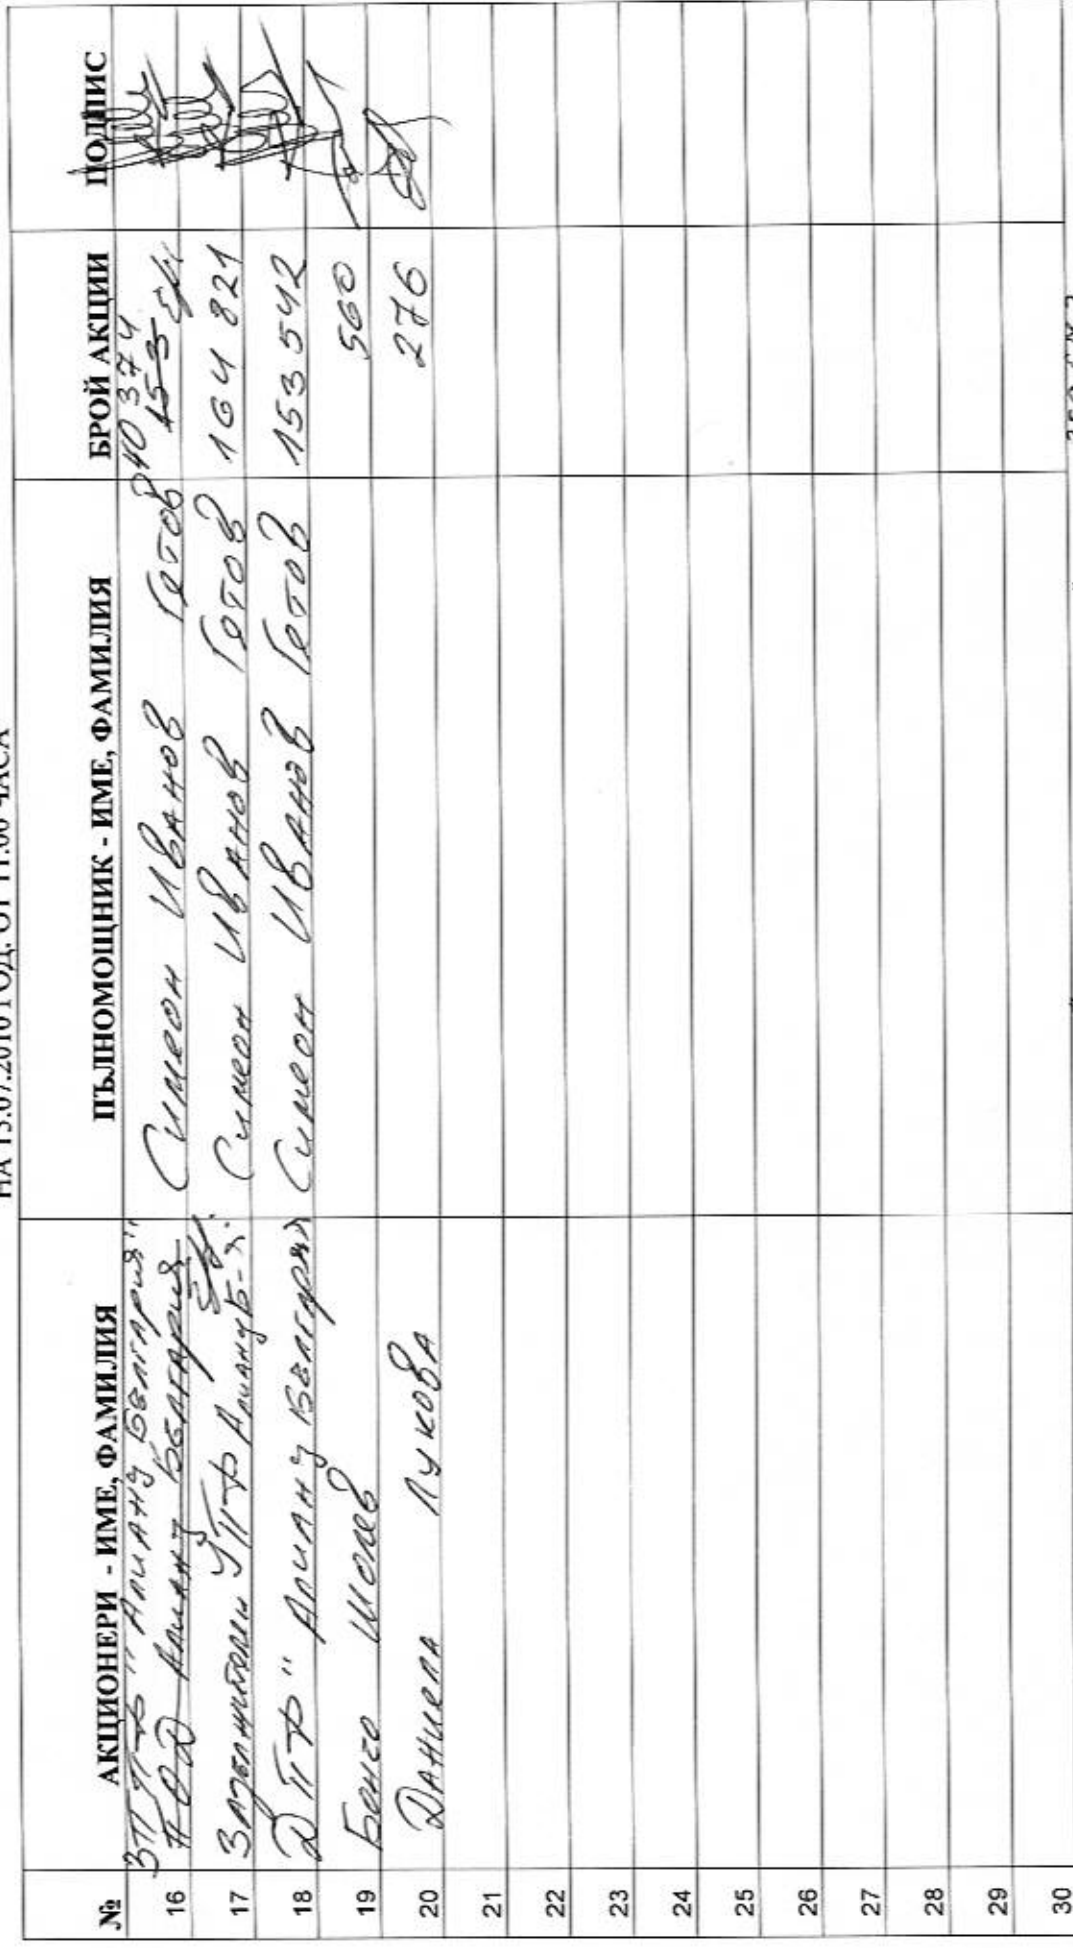 НА 15.07.2010 ГОД. ОТ 11.00 ЧАСА
№ АКЦИОНЕРИ - ИМЕ, ФАМИЛИЯ ПЪЛНОМОЩНИК - ИМЕ, ФАМИЛИЯ БРОЙ АКЦИИ ПОДПИС
ЗППФ "Алианц България" 240 374
16 Алианц България Симеон Иванов Гетов
17 УПФ Алианц Б-я Симеон Иванов Гетов 164 821
18 ДПФ "Алианц България Симеон Иванов Гетов 153 542
19 Бончо Шолев 560
20 Даниела Лукова 276
21
22
23
24
25
26
27
28
29
30